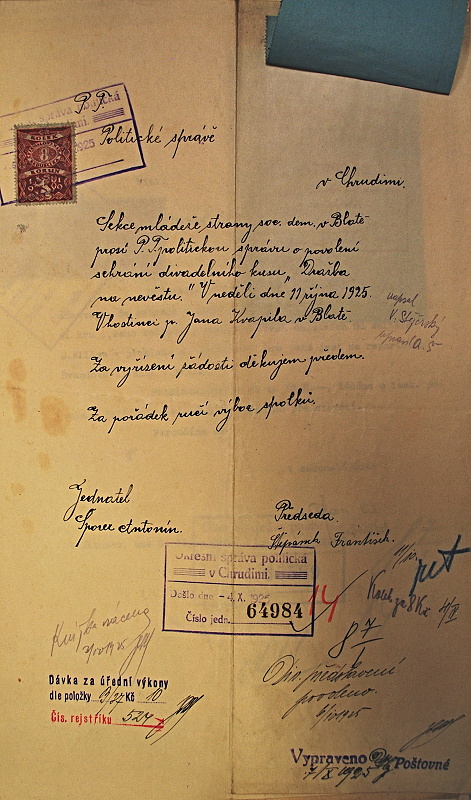 P. T.
Politické správě
v Chrudimi.
Sekce mládeže strany soc. dem. v Blatě
prosí P. T. politickou správu o povolení
sehrání divadelního kusu „Dražba
na nevěstu." V neděli dne 11 října 1925.
V hostinci p. Jana Kvapila v Blatě
Za vyřízení žádosti děkujem předem.
Za pořádek ručí výbor spolků.
napsal
Jednatel
Předseda.
Šporec Antonín.
Štěpánek František.
Okresní správa politická
v Chrudimi.
Došlo dne - 4. X. 1925
Číslo jedn. 64984
14
Kolek za 8 Kč
87
Dávka za úřední výkony
dle položky 9/27 Kč 10
Čís. rejstříku 527
Div. představení
povoleno.
Vypraveno Poštovné
7/X 1925